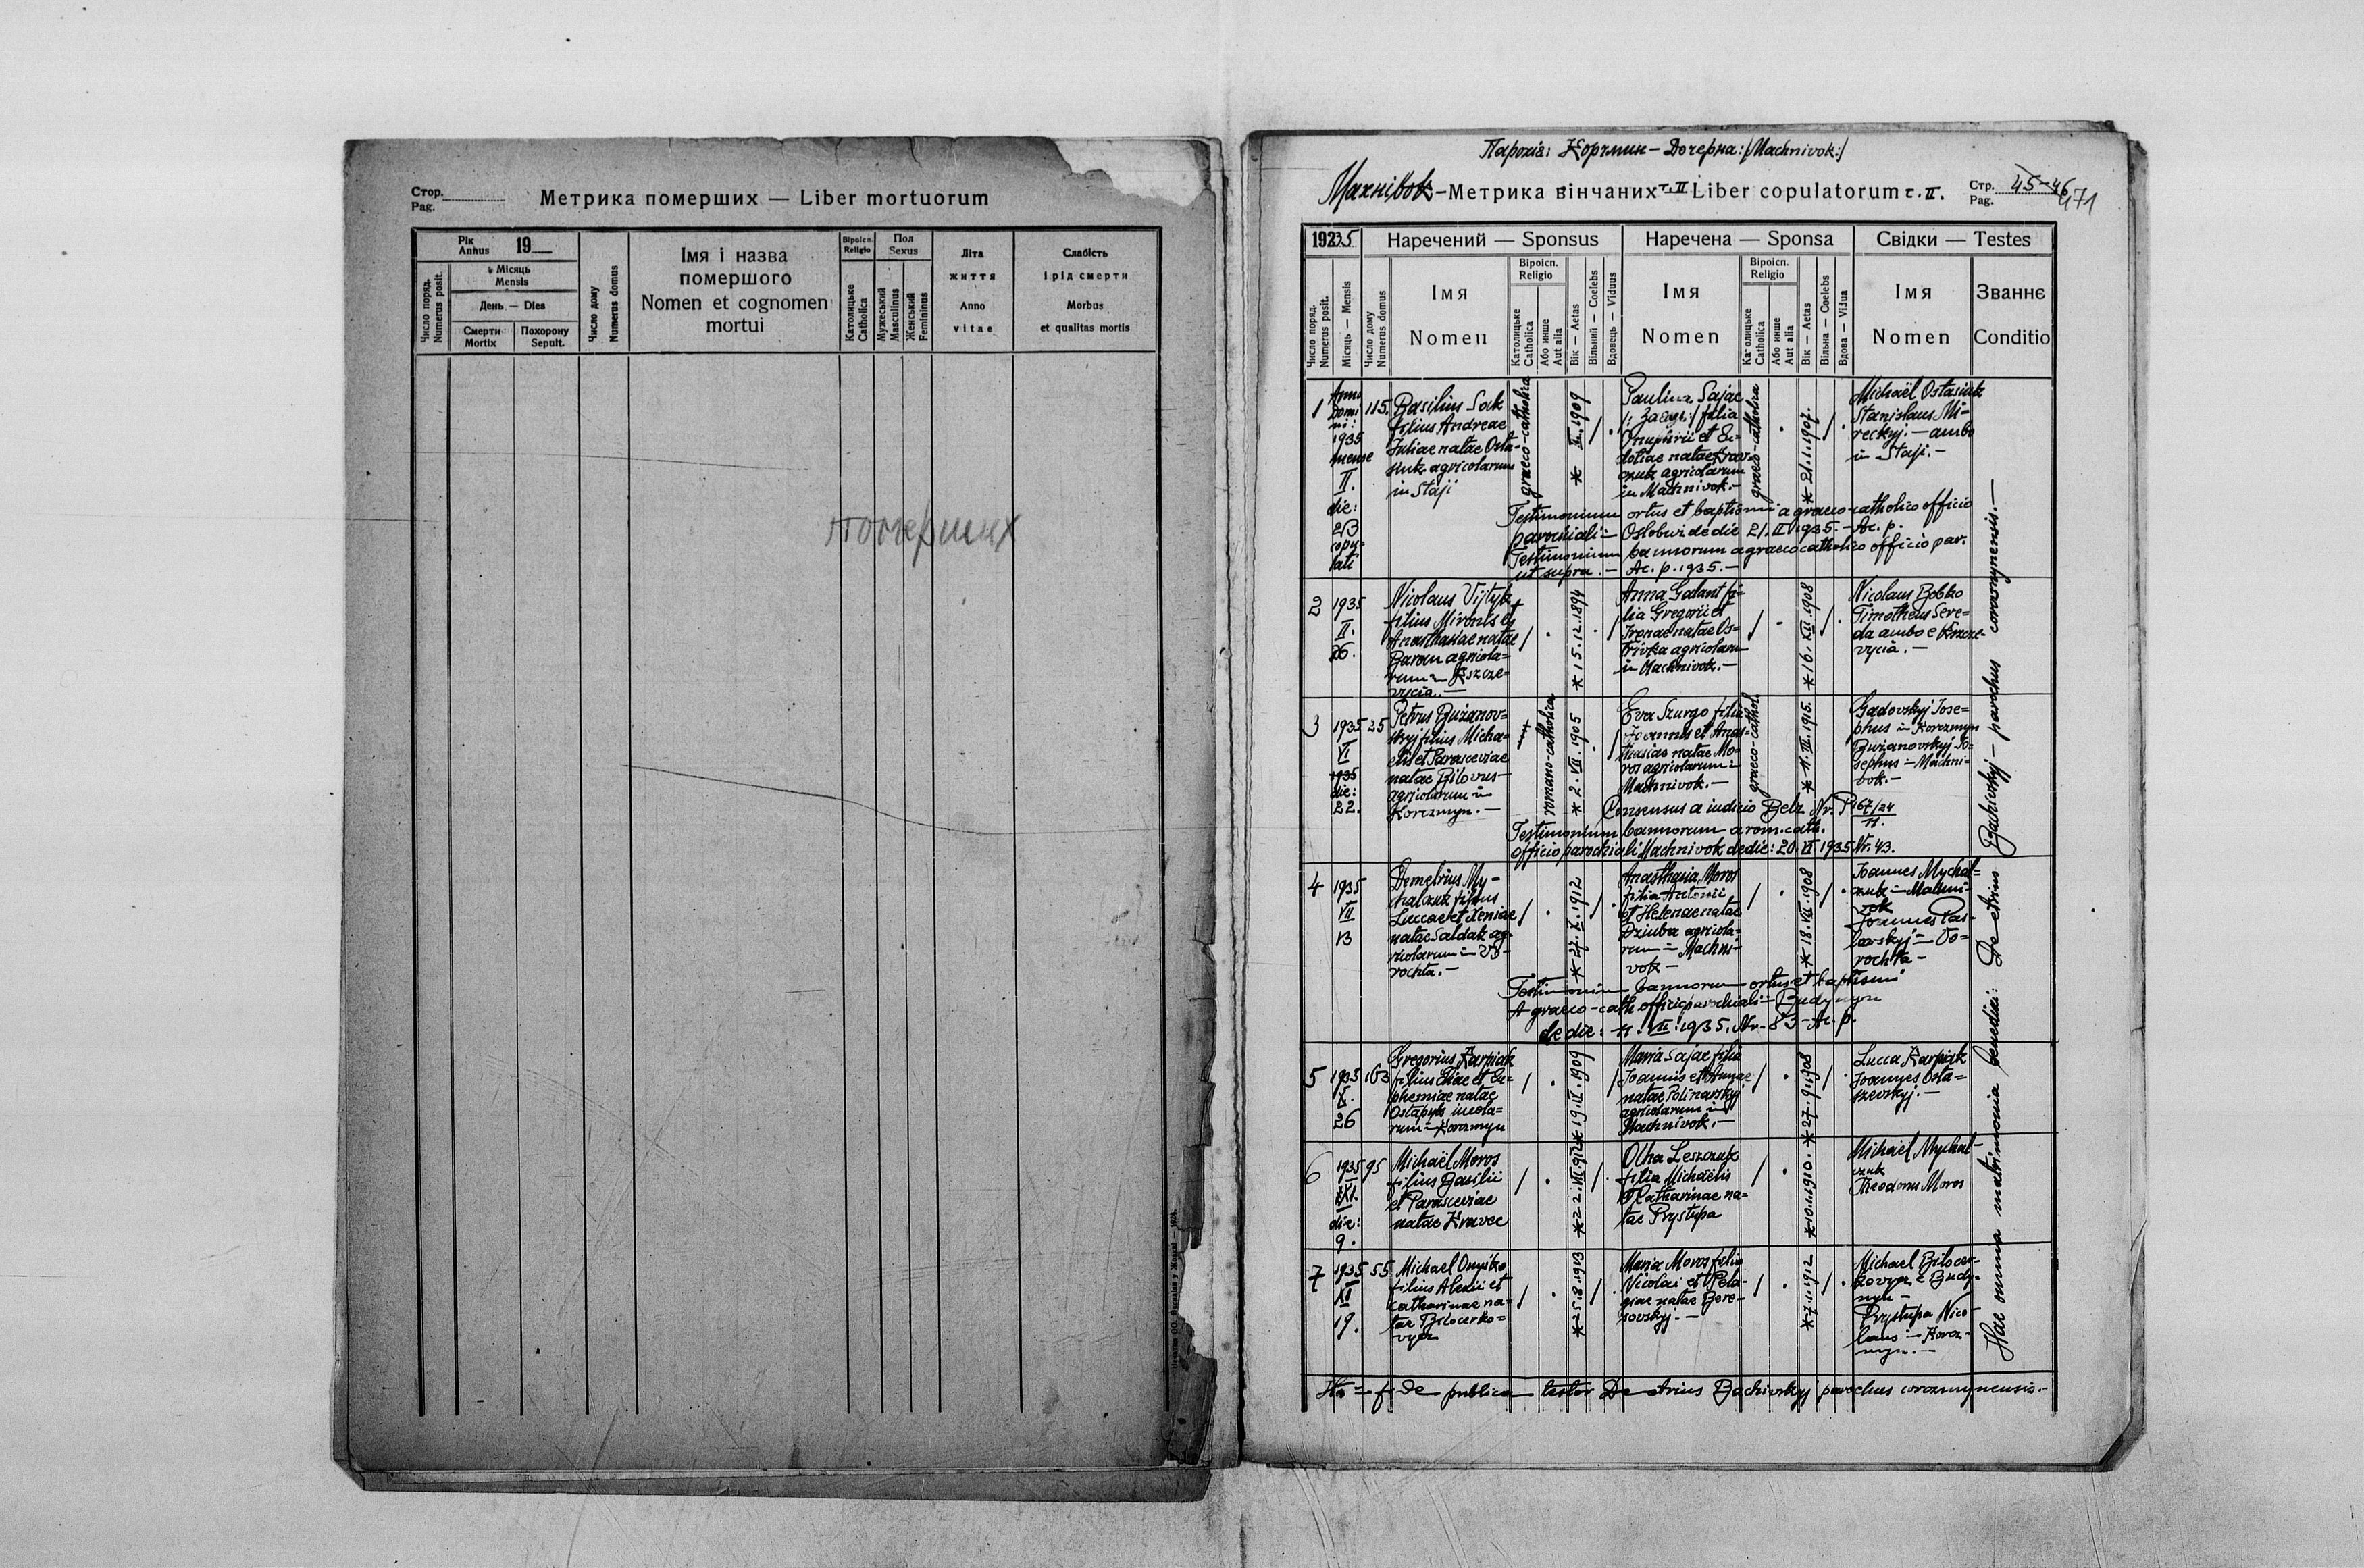 Стор.
Pag.
Метрика померших — Liber mortuorum
Рік
Annus 19
Число поряд.
Numerus posit.
Місяць
Mensis
День — Dies
Смерти
Mortix
Похорону
Sepult.
Число дому
Numerus domus
Імя і назва
помершого
Nomen et cognomen
mortui
Віроісп.
Religio
Католицьке
Catholica
Пол
Sexus
Мужеський
Masculinus
Женський
Femininus
Літа
життя
Anno
vitae
Слабість
і рід смерти
Morbus
et qualitas mortis
померших
Парохія: Корчмин — Дочерна: /Machnivok:/
Махнівок — Метрика вінчаних т. II Liber copulatorum т. II.
Стр.
Pag.
45-46
471
1935
Наречений — Sponsus
Наречена — Sponsa
Свідки — Testes
Число поряд.
Numerus posit.
Місяць — Mensis
Число дому
Numerus domus
Імя
Nomen
Віроісп.
Religio
Католицьке
Catholica
Або инше
Aut alia
Вік — Aetas
Вільний — Coelebs
Вдовець — Viduus
Імя
Nomen
Віроісп.
Religio
Католицьке
Catholica
Або инше
Aut alia
Вік — Aetas
Вільна — Coelebs
Вдова — Vidua
Імя
Nomen
Званнє
Conditio
1
Anno
Domi
ni:
1935
mense
II.
die:
23
copu-
lati
115.
Basilius Sak
filius Andreae
Juliae natae Osta-
agricolarum
in Staji
graeco-catholica
* II. 1909
Paulina Sajac
/: Заяць:/ filia
Onuphrii et Eu-
dotiae natae
agricolarum
in Machnivok.—
graeco-catholica
* 21.1.1907.
Michaël Ostasiuk
Stanislaus Mi-
reckyj.— ambo
in Staji.—
Testimonium ortus et baptismi a graeco-catholico officio
parochiali — de die 21.II.1935.— Ac. p.
Testimonium bannorum a graeco catholico officio par.
ut supra.— Ac. p. 1935.—
2
1935
II.
26.
Nicolaus Vijtyk
filius Mironis et
Anasthasiae natae
Baran agricola-
rum in Kszcze-
vycia.—
* 15.12.1894
Anna Galant fi-
lia Gregorii et
Irenae natae Os-
trivka agricolarum
in Machnivok.—
* 16.XII.1908
Nicolaus Bobko
Timotheus Sere-
da ambo e
vycia.—
3
1935
VI
1935
die:
22.
25
Petrus Bużanov-
skyj filius Micha-
elis et Parasceviae
natae Bilous—
agricolarum in
Korczmyn.—
romano-catholica
* 2.VII.1905
Eva Szurgo filia
Joannis et Anas-
thasiae natae Mo-
ros agricolarum in
Machnivok.—
graeco-cathol.
* 11.III.1915.
Gadovskyj Jose-
phus in Korczmyn
Bużanovskyj Jo-
sephus — Machni-
vok.—
Consensus a iudicio Belz Nr. P 167/24
11.
Testimonium bannorum a rom. cath.
officio parochiali Machnivok de die: 20.VI.1935 Nr. 43.
4
1935
VII
13
Demetrius My-
chalczuk filius
Luccae et Xeniae
natae Saldak ag-
ricolarum in Vo-
rochta.—
* 27.X.1912
Anasthasia Moros
filia Antonii
et Helenae natae
Dziuba agricola-
rum in Machni-
vok—
* 18.VII.1908
Joannes Mychal-
czuk — Machni-
vok
Joannes Pav-
lovskyj — Vo-
rochta—
Testimonium bannorum ortus et baptismi
A graeco-cath officio parochiali — Budynyn
de die: 11.VII.1935. Nr. 83 — Ac. p.
5
1935
X.
26
163
Gregorius Karpiak
filius Eliae et Eu-
phemiae natae
Ostapyk incola-
rum — Korczmyn
* 19.II.1909
Maria Sajac filia
Joannis et Annae
natae Polinavskyj
agricolarum in
Machnivok.—
* 27.9.1908
Lucca Karpiak
Joannes Osta-
szevskyj.—
6
1935
XI.
die:
9.
95
Michaël Moros
filius Basilii
et Parasceviae
natae Kravec
* 22.VII.1912
Olha Leszczuk
filia Michaëlis
et Katharinae na-
tae Prystupa
* 10.1.1910.
Michaël Mychal-
czuk
Theodorus Moros
7
1935
XI
19.
55
Michael Onyśko
filius Alexii et
Catharinae na-
tae Bilocerko-
vycz
* 25.8.1913
Maria Moros filia
Nicolai et Pela-
giae natae Bere-
sovskyj.—
* 7.1.1912
Michael Bilocer-
kovycz e Budy-
nyn—
Prystupa Nico-
laus — Korcz-
myn.—
Hae omnia matrimonia benedixi: Demetrius Bachivskyj — parochus corczmynensis.—
Ita in fide publica testor Demetrius Bachivskyj parochus corczmynensis.—